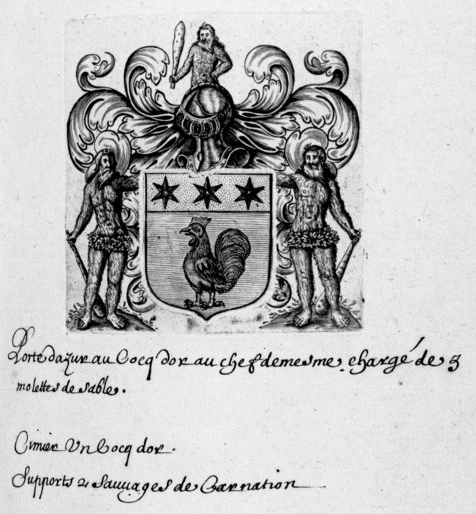 Porte dazur au Cocq dor au chef demesme. chargé de 3
molettes de sable.
Cimier Un Cocq dor.
Supports 2 sauuages de Carnation